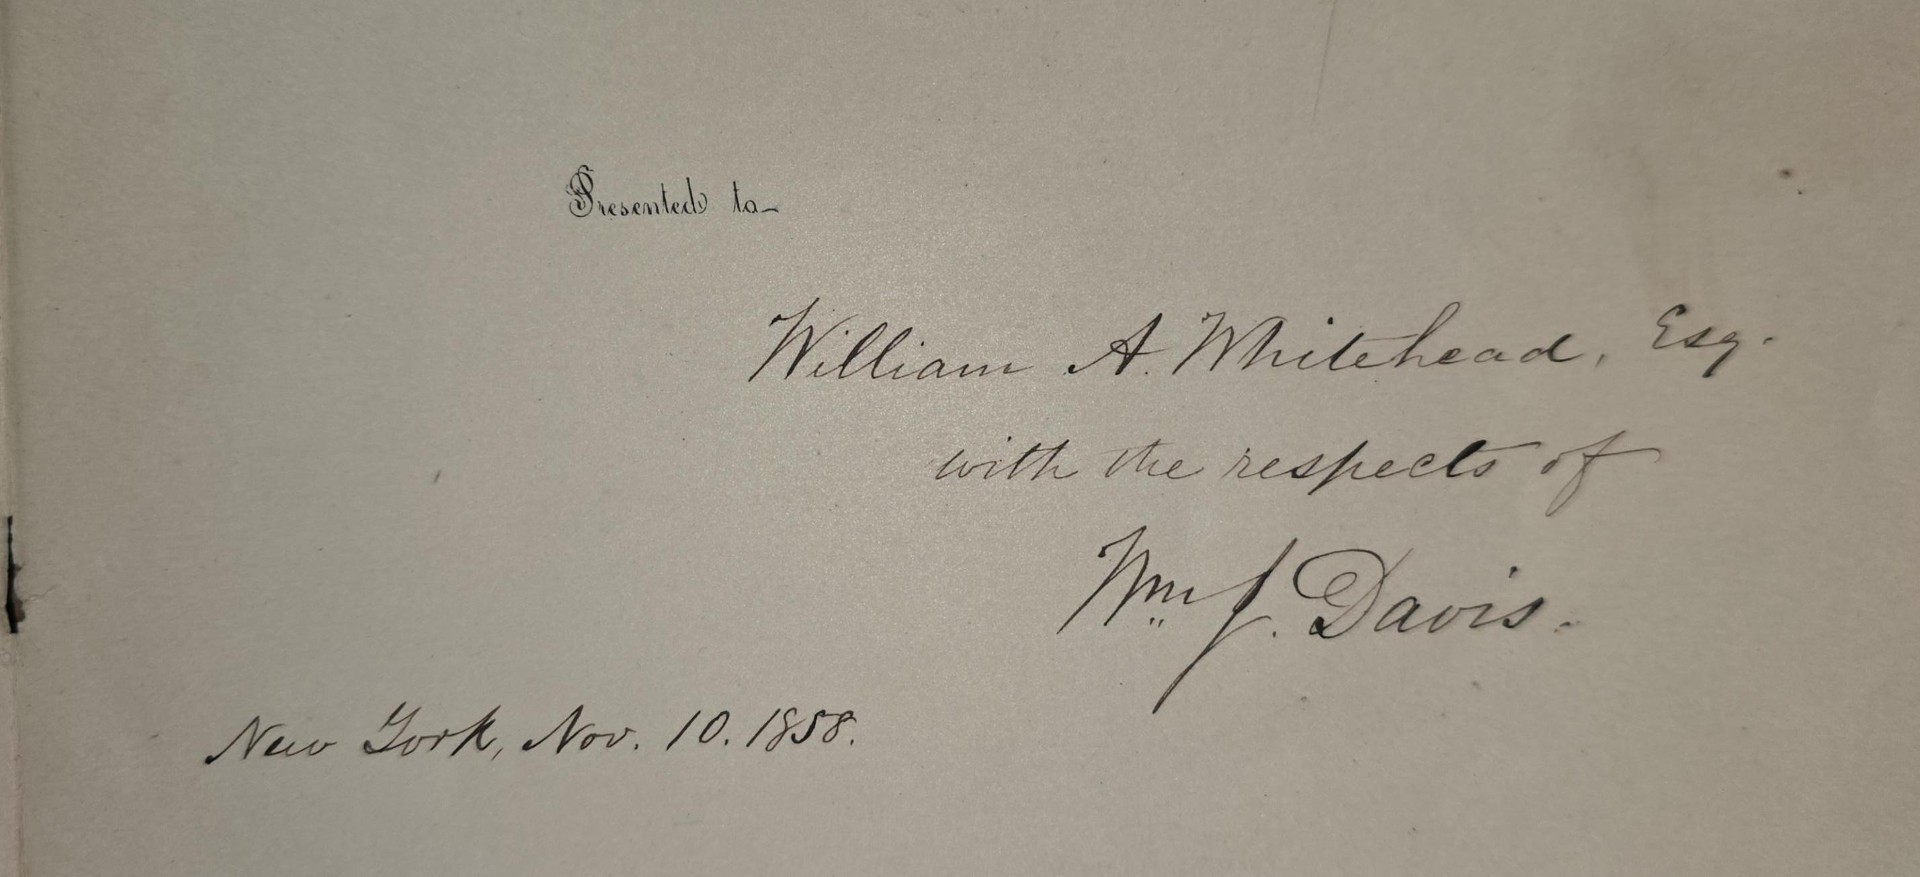 Presented to
William A. Whitehead, Esq.
with the respects of
Wm J. Davis.
New York, Nov. 10. 1858.